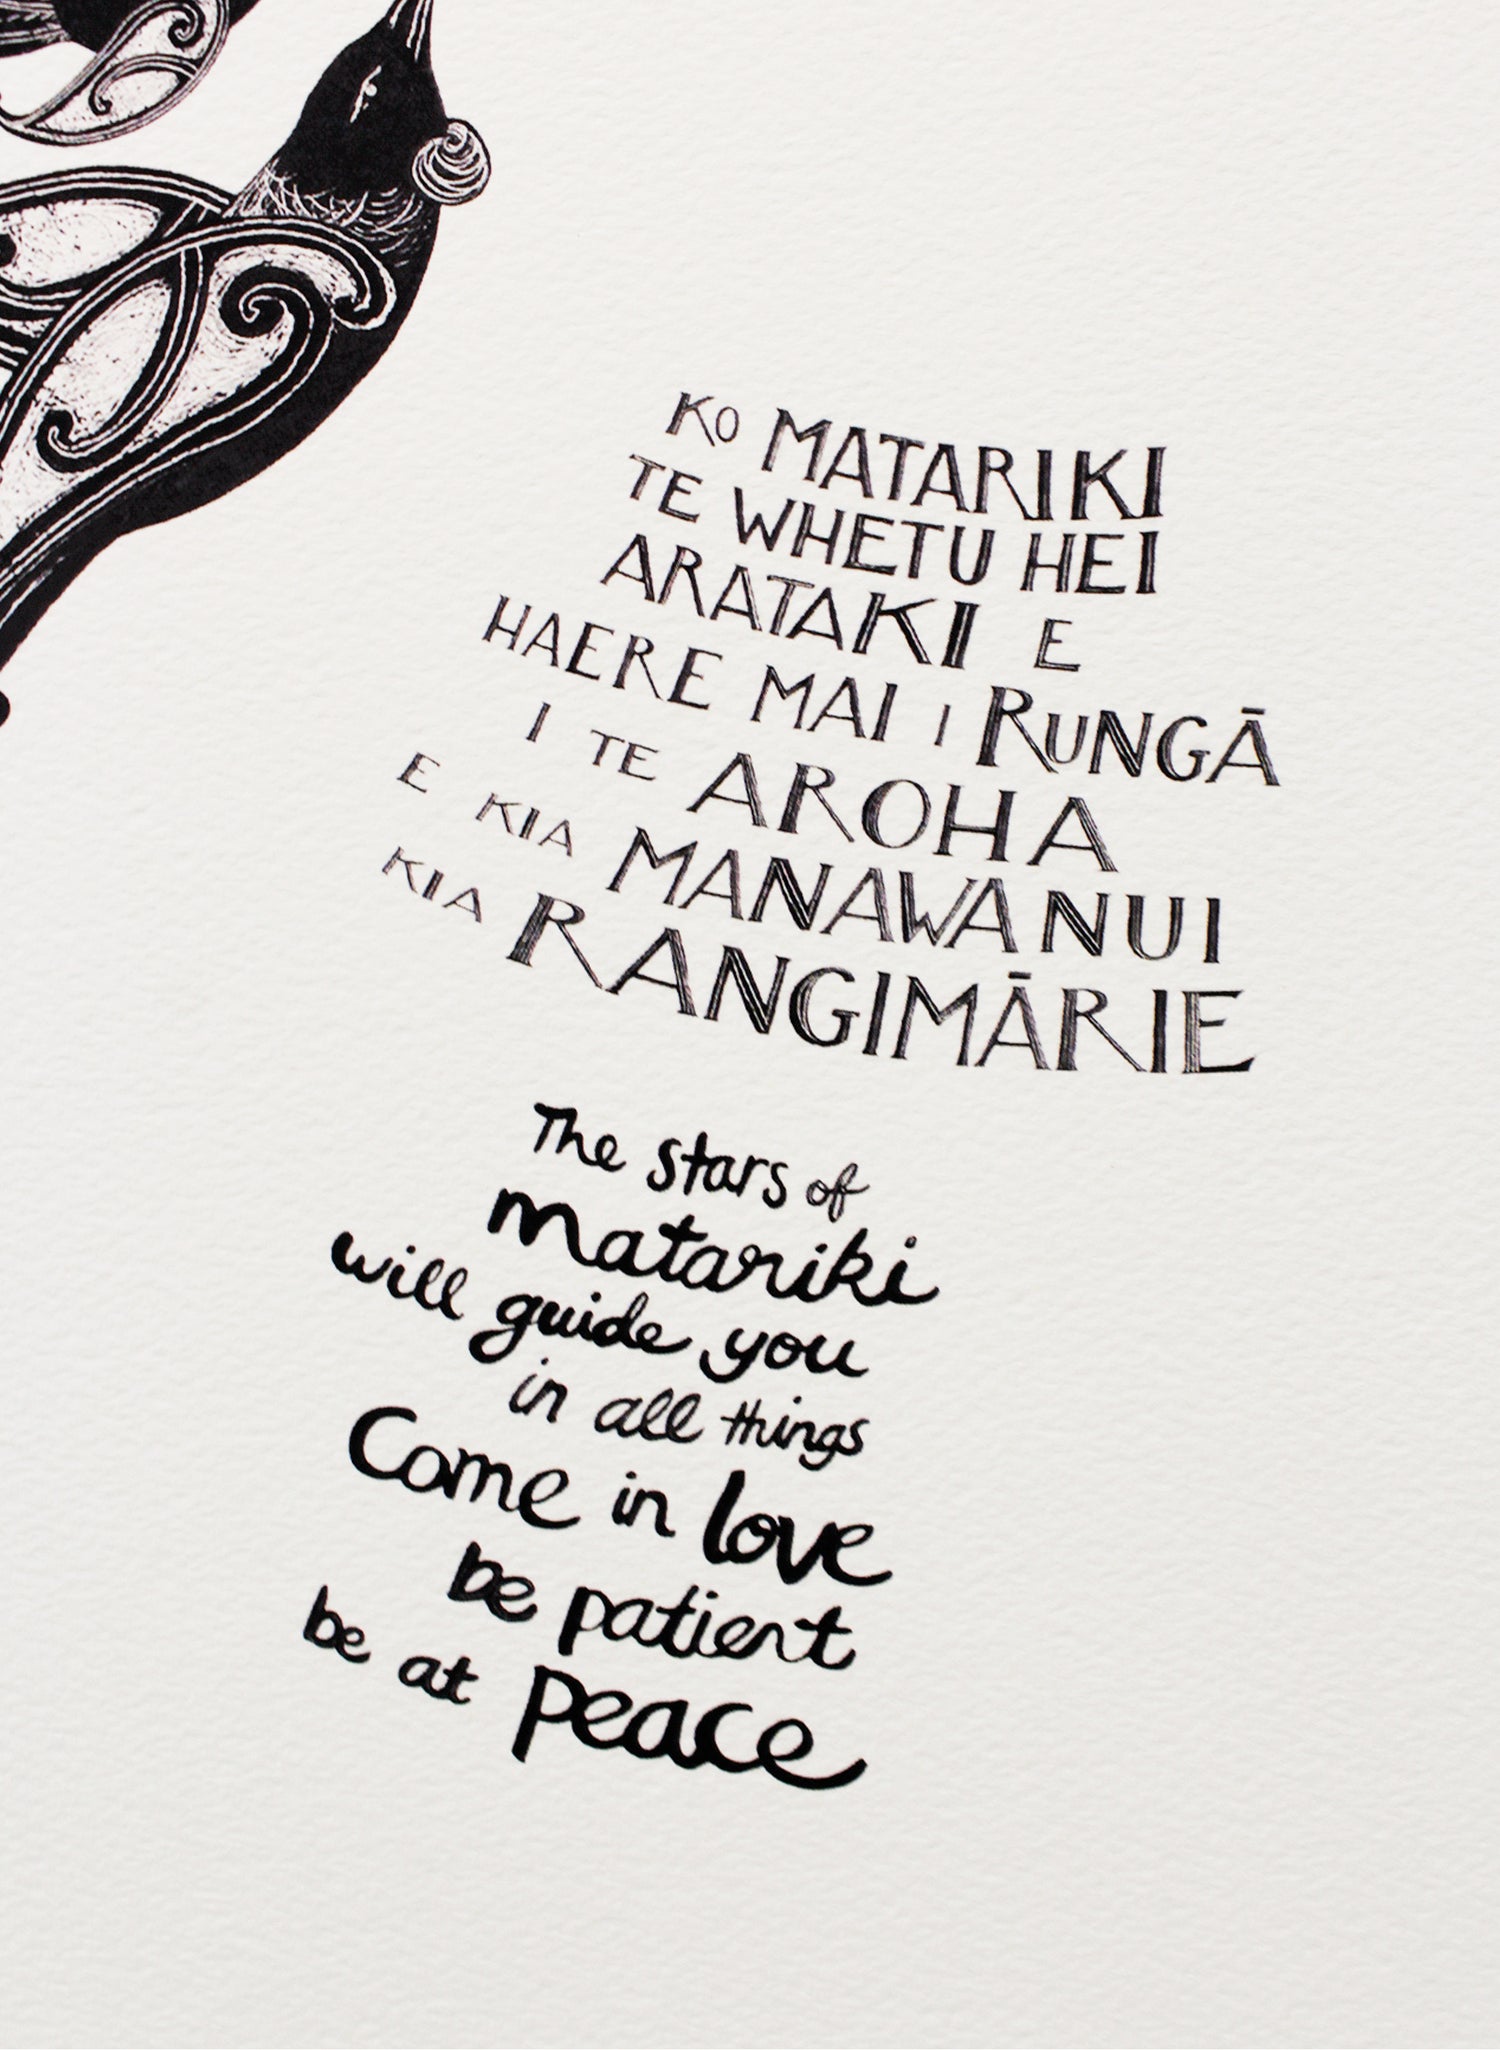 KO MATARIKI
TE WHETU HEI
ARATAKI E
HAERE MAI I RUNGĀ
I TE AROHA
E KIA MANAWANUI
KIA RANGIMĀRIE
The stars of
matariki
will guide you
in all things
Come in love
be patient
be at peace